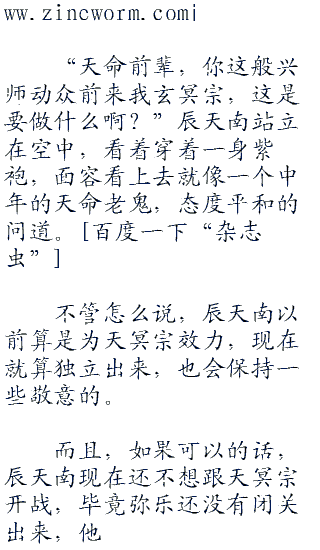 ww.zincworm.com|
“天命前辈，你这般兴
师动众前来我玄冥宗，这是
要做什么啊？”辰天南站立
在空中，看着穿着一身紫
袍，面容看上去就像一个中
年的天命老鬼，态度平和的
问道。[百度一下“杂志
虫”]
不管怎么说，辰天南以
前算是为天冥宗效力，现在
就算独立出来，也会保持一
些敬意的。
而且，如果可以的话，
辰天南现在还不想跟天冥宗
开战，毕竟弥乐还没有闭关
出来，他